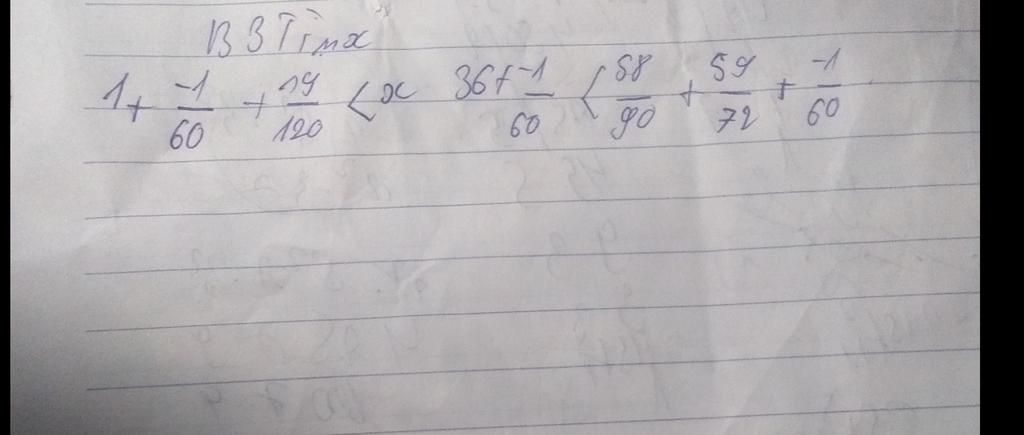 В З Тimx
1 + -1/60 + 19/120 < x 36 + -1/60 < 58/90 + 59/72 + -1/60